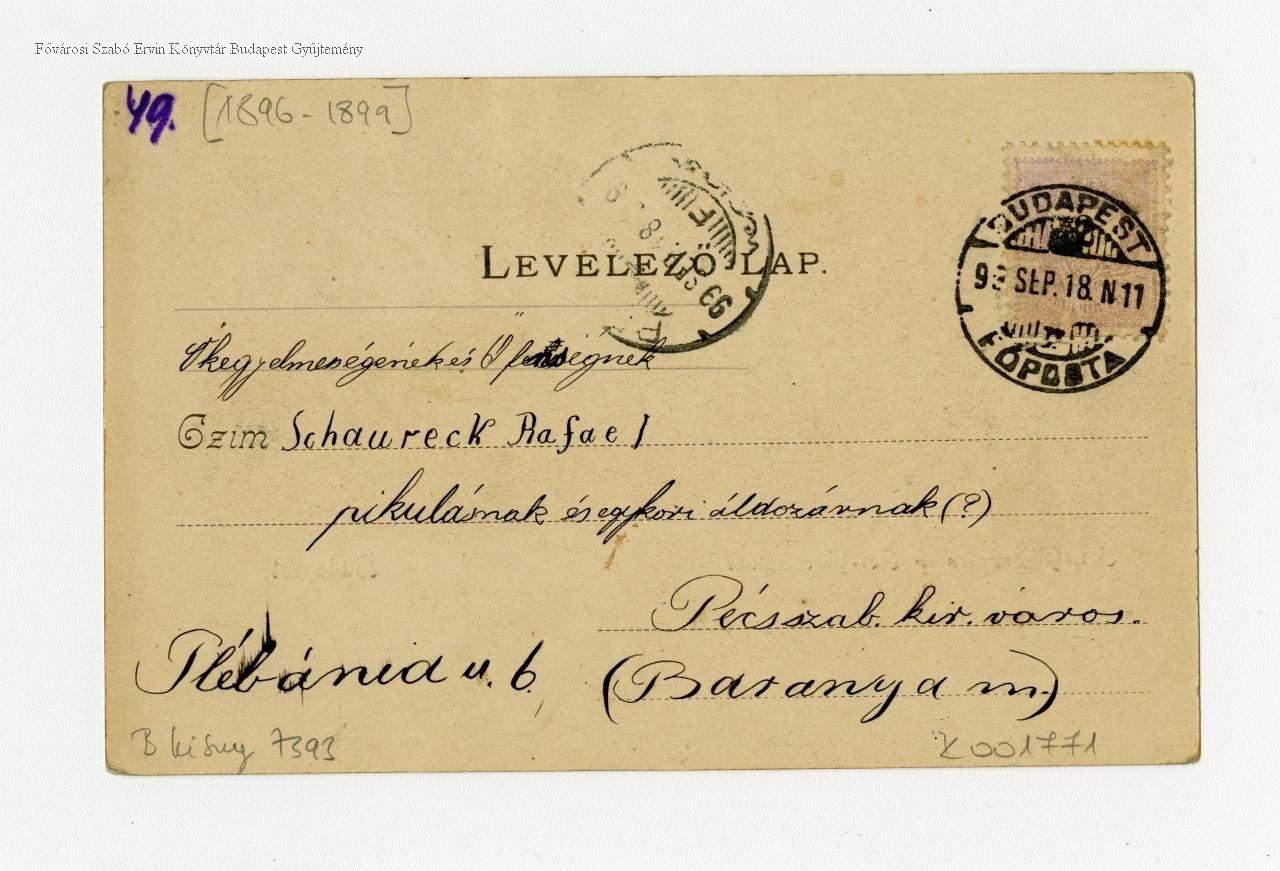 Fővárosi Szabó Ervin Könyvtár Budapest Gyűjtemény
49. [1896-1899]
BUDAPEST
99 SEP. 18. N 11
FŐPOSTA
LEVELEZŐ LAP.
Őkegyelmességének és Ő fenségnek
Czim Schaureck Rafael
pikulásnak és egykori áldozárnak (?)
Pécs szab. kir. város.
Plébánia u. 6. (Baranya m.)
B kisny 7393
K 001771